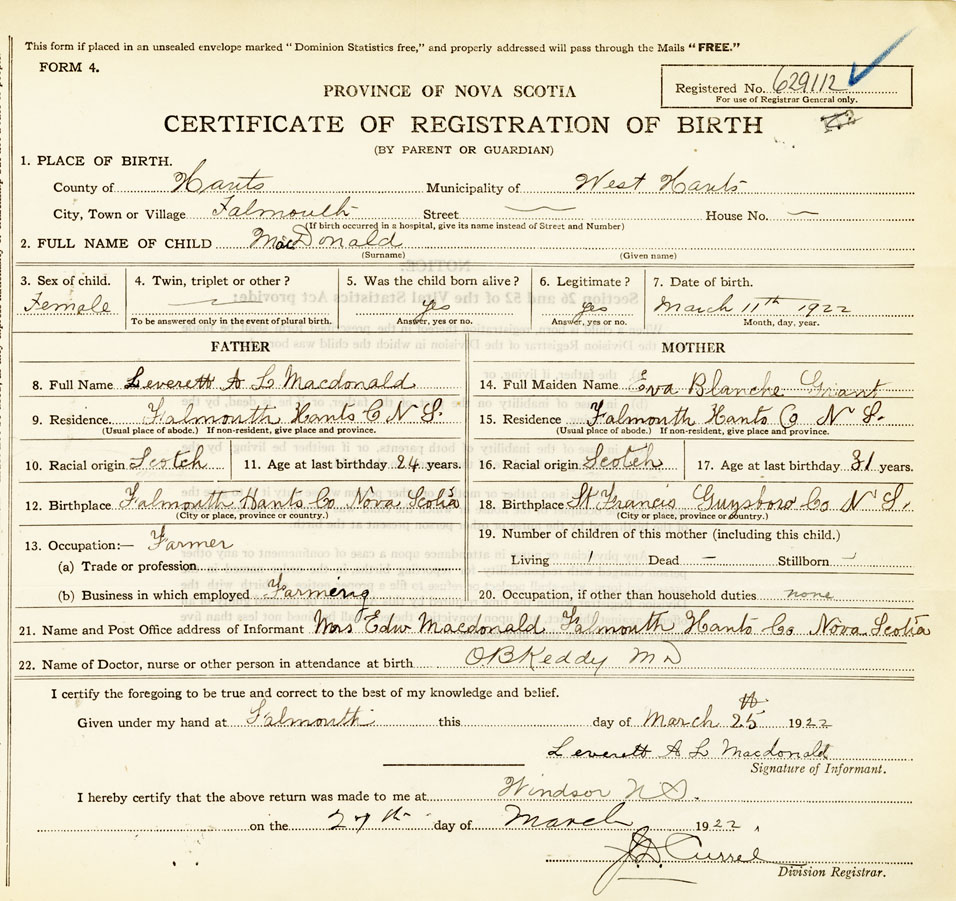 This form if placed in an unsealed envelope marked "Dominion Statistics free," and properly addressed will pass through the Mails "FREE."
FORM 4.
Registered No. 629112
For use of Registrar General only.
PROVINCE OF NOVA SCOTIA
CERTIFICATE OF REGISTRATION OF BIRTH
(BY PARENT OR GUARDIAN)
1. PLACE OF BIRTH.
County of Hants Municipality of West Hants
City, Town or Village Falmouth Street — House No. —
(If birth occurred in a hospital, give its name instead of Street and Number)
2. FULL NAME OF CHILD MacDonald
(Surname) (Given name)
3. Sex of child. 4. Twin, triplet or other? 5. Was the child born alive? 6. Legitimate? 7. Date of birth.
Female — yes yes March 11th 1922
To be answered only in the event of plural birth. Answer, yes or no. Answer, yes or no. Month, day, year.
FATHER MOTHER
8. Full Name Leverett A L Macdonald 14. Full Maiden Name Eva Blanche Grant
9. Residence Falmouth Hants Co N S. 15. Residence Falmouth Hants Co N S.
(Usual place of abode.) If non-resident, give place and province. (Usual place of abode.) If non-resident, give place and province.
10. Racial origin Scotch 11. Age at last birthday 24 years. 16. Racial origin Scotch 17. Age at last birthday 31 years.
12. Birthplace Falmouth Hants Co Nova Scotia 18. Birthplace St Francis Guysboro Co N S.
(City or place, province or country.) (City or place, province or country.)
13. Occupation:— Farmer 19. Number of children of this mother (including this child.)
(a) Trade or profession Living 1 Dead — Stillborn —
(b) Business in which employed Farming 20. Occupation, if other than household duties none
21. Name and Post Office address of Informant Mrs Edw Macdonald Falmouth Hants Co Nova Scotia
22. Name of Doctor, nurse or other person in attendance at birth O B Keddy M D
I certify the foregoing to be true and correct to the best of my knowledge and belief.
Given under my hand at Falmouth this day of March 25th 1922
Leverett A L Macdonald
Signature of Informant.
I hereby certify that the above return was made to me at Windsor N S.
on the 27th day of March 1922
Division Registrar.